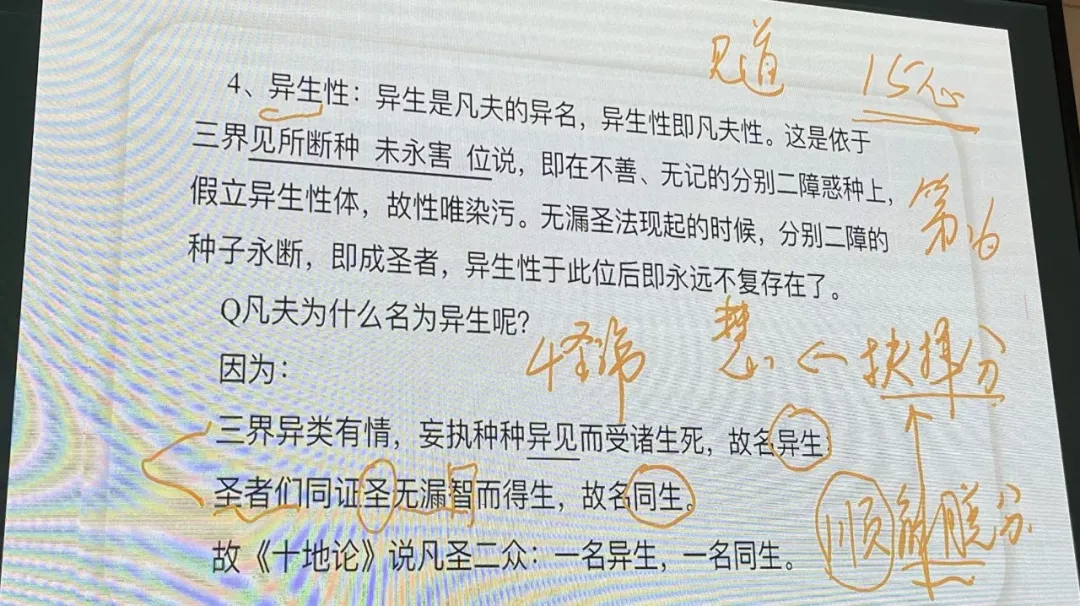 见道 15心
4、异生性：异生是凡夫的异名，异生性即凡夫性。这是依于
三界见所断种 未永害 位说，即在不善、无记的分别二障惑种上，
假立异生性体，故性唯染污。无漏圣法现起的时候，分别二障的
种子永断，即成圣者，异生性于此位后即永远不复存在了。
第16
Q凡夫为什么名为异生呢?
4圣谛 慧 ← 抉择分
因为：
三界异类有情，妄执种种异见而受诸生死，故名异生；
圣者们同证圣无漏智而得生，故名同生。
顺解脱分
故《十地论》说凡圣二众：一名异生，一名同生。